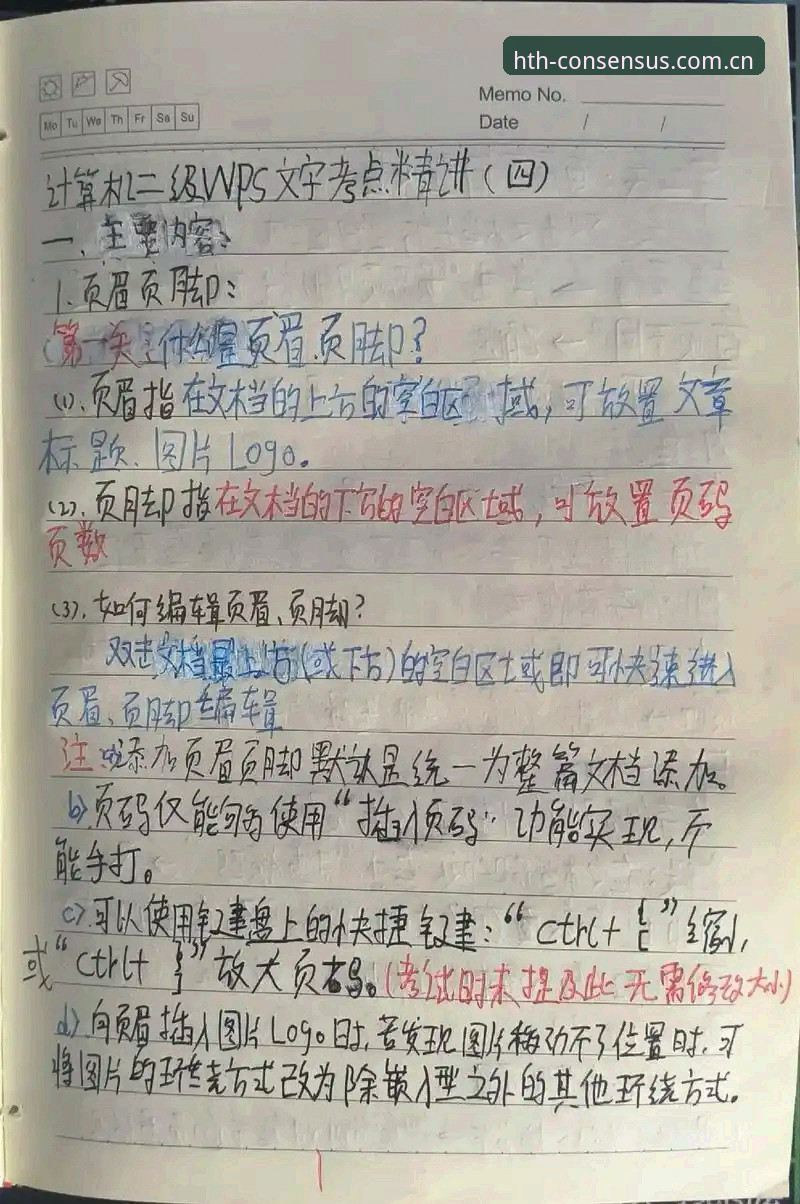 hth-consensus.com.cn
Memo No.
Mo Tu We Th Fr Sa Su
Date / /
计算机二级WPS文字考点精讲(四)
一、主要内容:
1.页眉页脚:
页眉.页脚?
(1).页眉指在文档的上方的空白区域,可放置文章
标题、图片Logo。
(2).页脚指在文档的下方的空白区域,可放置页码
页数
(3).如何编辑页眉、页脚?
双击文档最上方(或下方)的空白区域即可快速进入
页眉、页脚编辑
注:添加页眉页脚默认是统一为整篇文档添加。
b>页码仅能够使用“插入页码”功能实现,不
能手打。
c>可以使用键盘上的快捷键:“Ctrl+{[”缩小,
或“Ctrl+}]”放大页码。(考试时未提及此无需修改大小)
d>向页眉插入图片Logo时,若发现图片移动不了位置时,可
将图片的环绕方式改为除嵌入型之外的其他环绕方式。
1